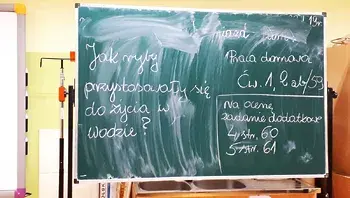 Jak ryby
przystosowały się
do życia w
wodzie?
Praca domowa
Ćw. 1, 2 ab/59
Na ocenę
zadanie dodatkowe
4 str. 60
5 str. 61